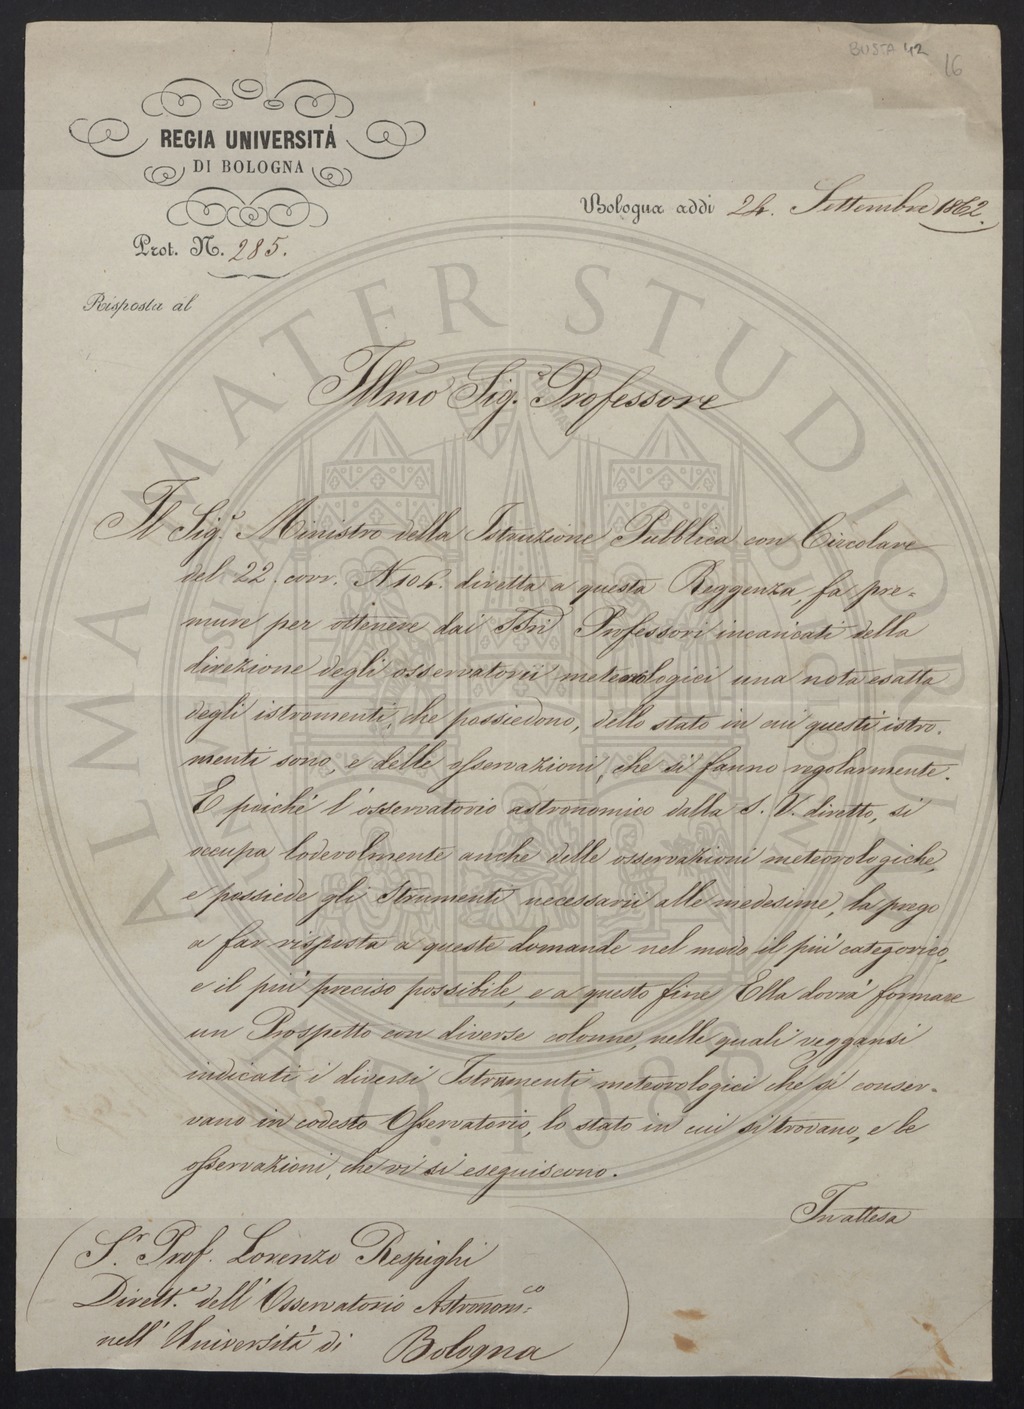 BUSTA 42
16
REGIA UNIVERSITÀ
DI BOLOGNA
Prot. N. 285.
Bologna addì 24. Settembre 1862.
Risposta al
Illmo Sig.e Professore
Il Sig.r Ministro della Istruzione Pubblica con Circolare
del 22. corr. N 104. diretta a questa Reggenza, fa pre=
mure per ottenere dai SSri Professori incaricati della
direzione degli osservatorii meteorologici una nota esatta
degli istromenti, che possiedono, dello stato in cui questi istro.
menti sono, e delle osservazioni, che si fanno regolarmente.
E poichè l'osservatorio astronomico dalla S. V. diretto, si
occupa lodevolmente anche delle osservazioni meteorologiche,
e possiede gli Strumenti necessarii alle medesime, la prego
a far risposta a queste domande nel modo il più categorico,
e il più preciso possibile, e a questo fine Ella dovrà formare
un Prospetto con diverse colonne, nelle quali veggansi
indicati i diversi Istrumenti meteorologici che si conser-
vano in codesto Osservatorio, lo stato in cui si trovano, e le
osservazioni, che vi si eseguiscono.
In attesa
S.r Prof. Lorenzo Respighi
Dirett.e dell'Osservatorio Astronom=co
nell'Università di Bologna
ALMA MATER STUDIORUM
A.D. 1088